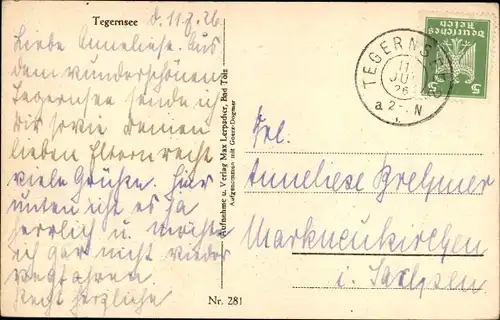 Tegernsee d. 11.7.26.
Liebe Anneliese. Aus
dem wunderschönen
Tegernsee sende ich
Dir sowie Deinen
lieben Eltern recht
viele Grüße. Hier
unten ist es ja
herrlich u. möchte
ich gar nicht wieder
wegfahren.
Recht herzliche
Aufnahme u. Verlag Max Lerpscher, Bad Tölz
Aufgenommen mit Goerz-Dogmar
Nr. 281
TEGERNSEE
11
JUL
26
a 2- N
Deutsches
Reich
5 5
Frl.
Anneliese Brehmer
Markneukirchen
i. Sachsen